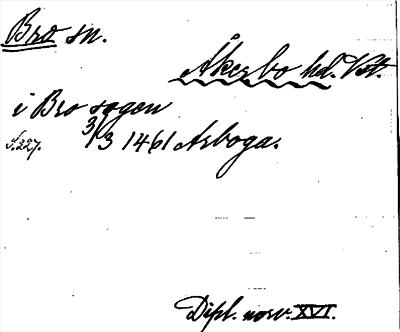 Bro sn.
Åkerbo hd. Vstm.
i Bro sogen
S. 227. 3/3 1461 Arboga.
Dipl. norv. XVI.